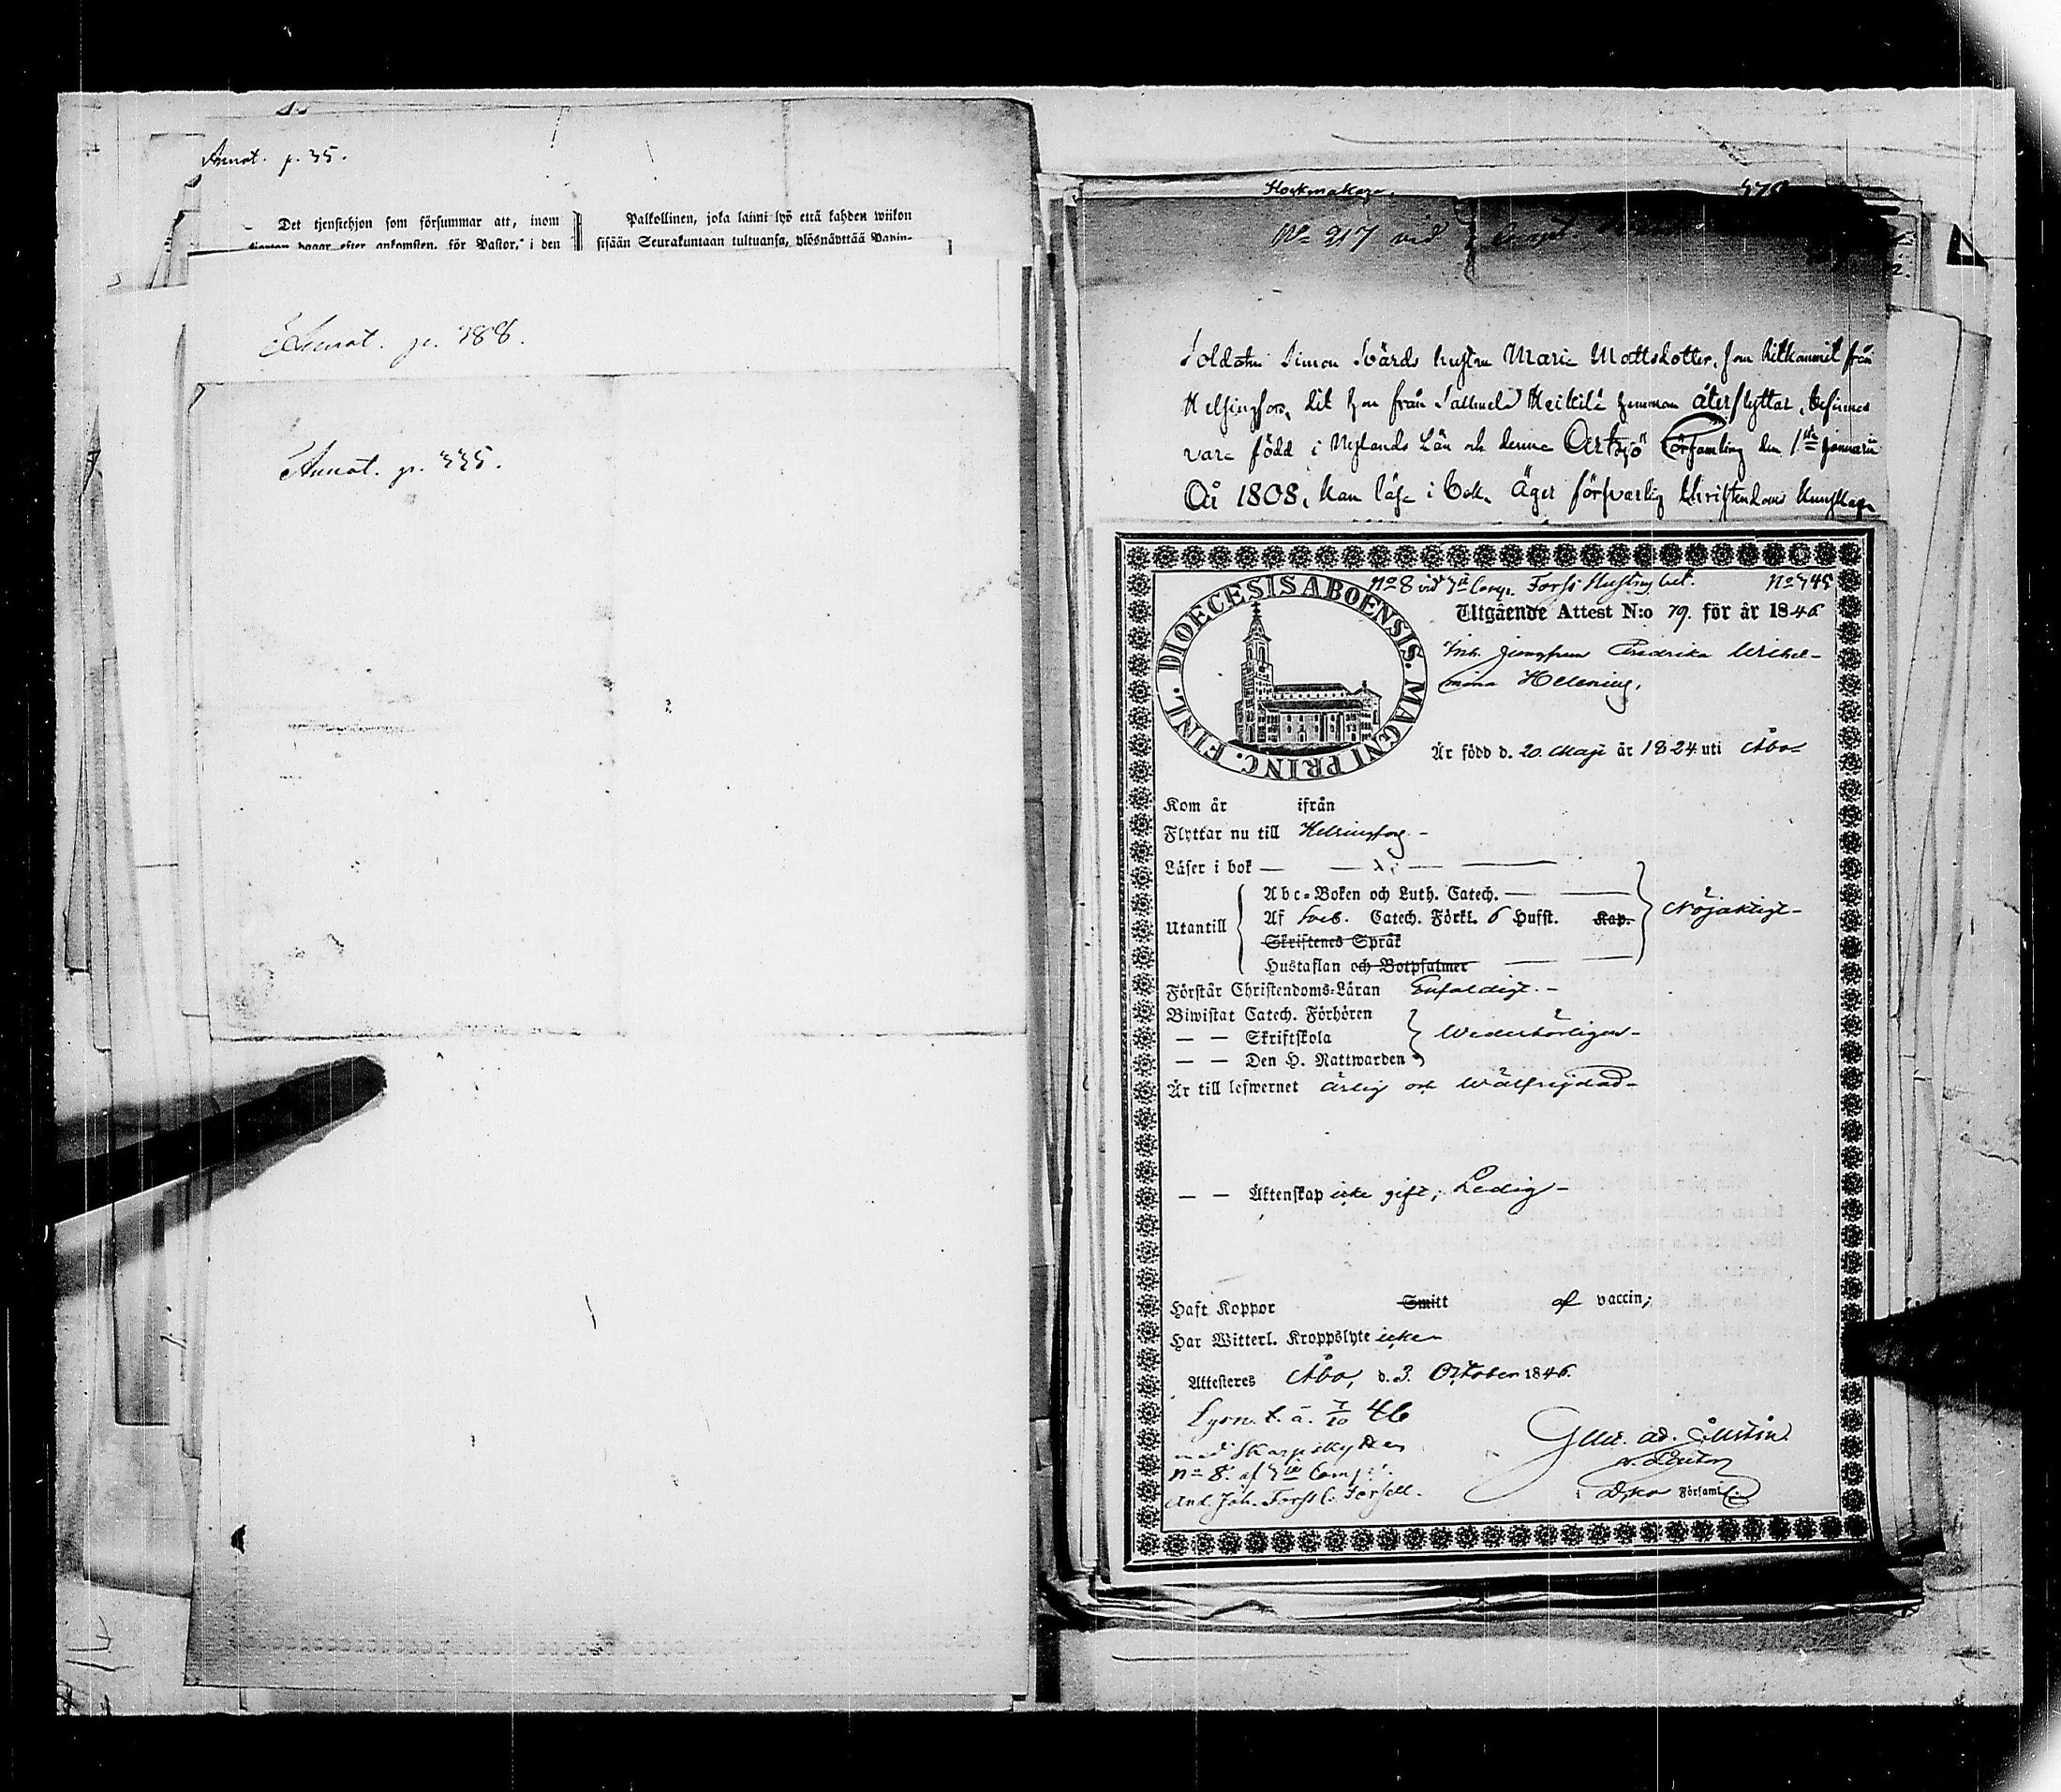 Annot. p. 35.
Det tjenstehjon som försummar att, inom
dagar efter ankomsten, för Pastor, i den
Palkollinen, joka laimi lyö että kahden wiikon
sisään Seurakuntaan tultuansa, ylösnäyttää
Annot. p. 388.
Annot. p. 335.
N:o 217 vid
Soldaten Simon Svärds hustru Maria Mattsdotter, som hitkommit från
Helsingfors, dit hon från Heikilä hemman återflyttar, befinnes
vara född i Nylands Län och denna Artsjö Församling den 1sta Januarii
År 1808, kan läsa i bok, Äger försvarlig Christendoms kunskap
DIOECESIS ABOENSIS. MAGNI PRINC. FINL.
N:o 8 vid Comp. Forss Hustru
N:o 745
Utgående Attest N:o 79. för år 1846
Jungfrun Fredrika Wilhel-
mina Helenius,
Är född d. 20. Maji år 1824 uti Åbo
Kom år ifrån
Flyttar nu till Helsingfors -
Läser i bok — — x. — —
Utantill
Abc-Boken och Luth. Catech. — —
Af Sveb. Catech. Förkl. 6 Hufst. Kap.
Skriftenes Språk
Hustaflan och Botpsalmer — —
Nöjaktigt -
Förstår Christendoms-Läran Enfaldigt. -
Biwistat Catech. Förhören
— — Skriftskola
— — Den H. Nattwarden
Wederbörligen -
Är till lefwernet ärlig och wälfrejdad -
— — Äktenskap icke gift; Ledig -
Haft Koppor Smitt af vaccin;
Har Witterl. Kroppslyte icke -
Attesteres Åbo, d. 3. October 1846.
Lysn. t. ä. 7/10 46
med Skarpskytten
N:o 8. af Comp.
And. Joh. Forss
Församl.